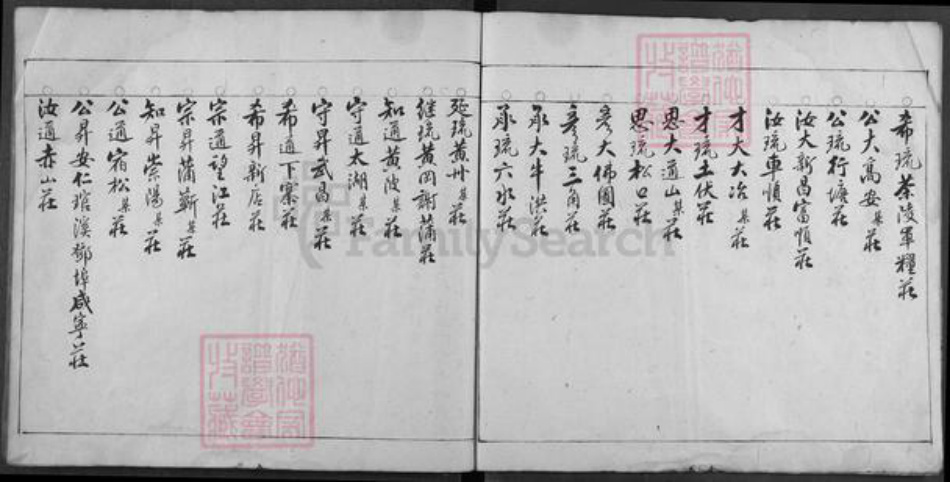 希琉茶陵軍糧莊
公大高安某莊
公琉行塘莊
汝大新昌富順莊
汝琉車順莊
才大大冶某莊
才琉土伏莊
思大通山某莊
思琉松口莊
彦大佛圖莊
彦琉三角莊
承大牛洪莊
承琉六水莊
延琉黄州某莊
继琉黄冈謝蒲莊
知通黄陂某莊
守通太湖某莊
守昇武昌某莊
希通下寨莊
希昇新店莊
宗通望江莊
宗昇蒲蘄某莊
知昇崇陽某莊
公通宿松某莊
公昇安仁琯溪鄧埠咸寧莊
汝通赤山莊
FamilySearch